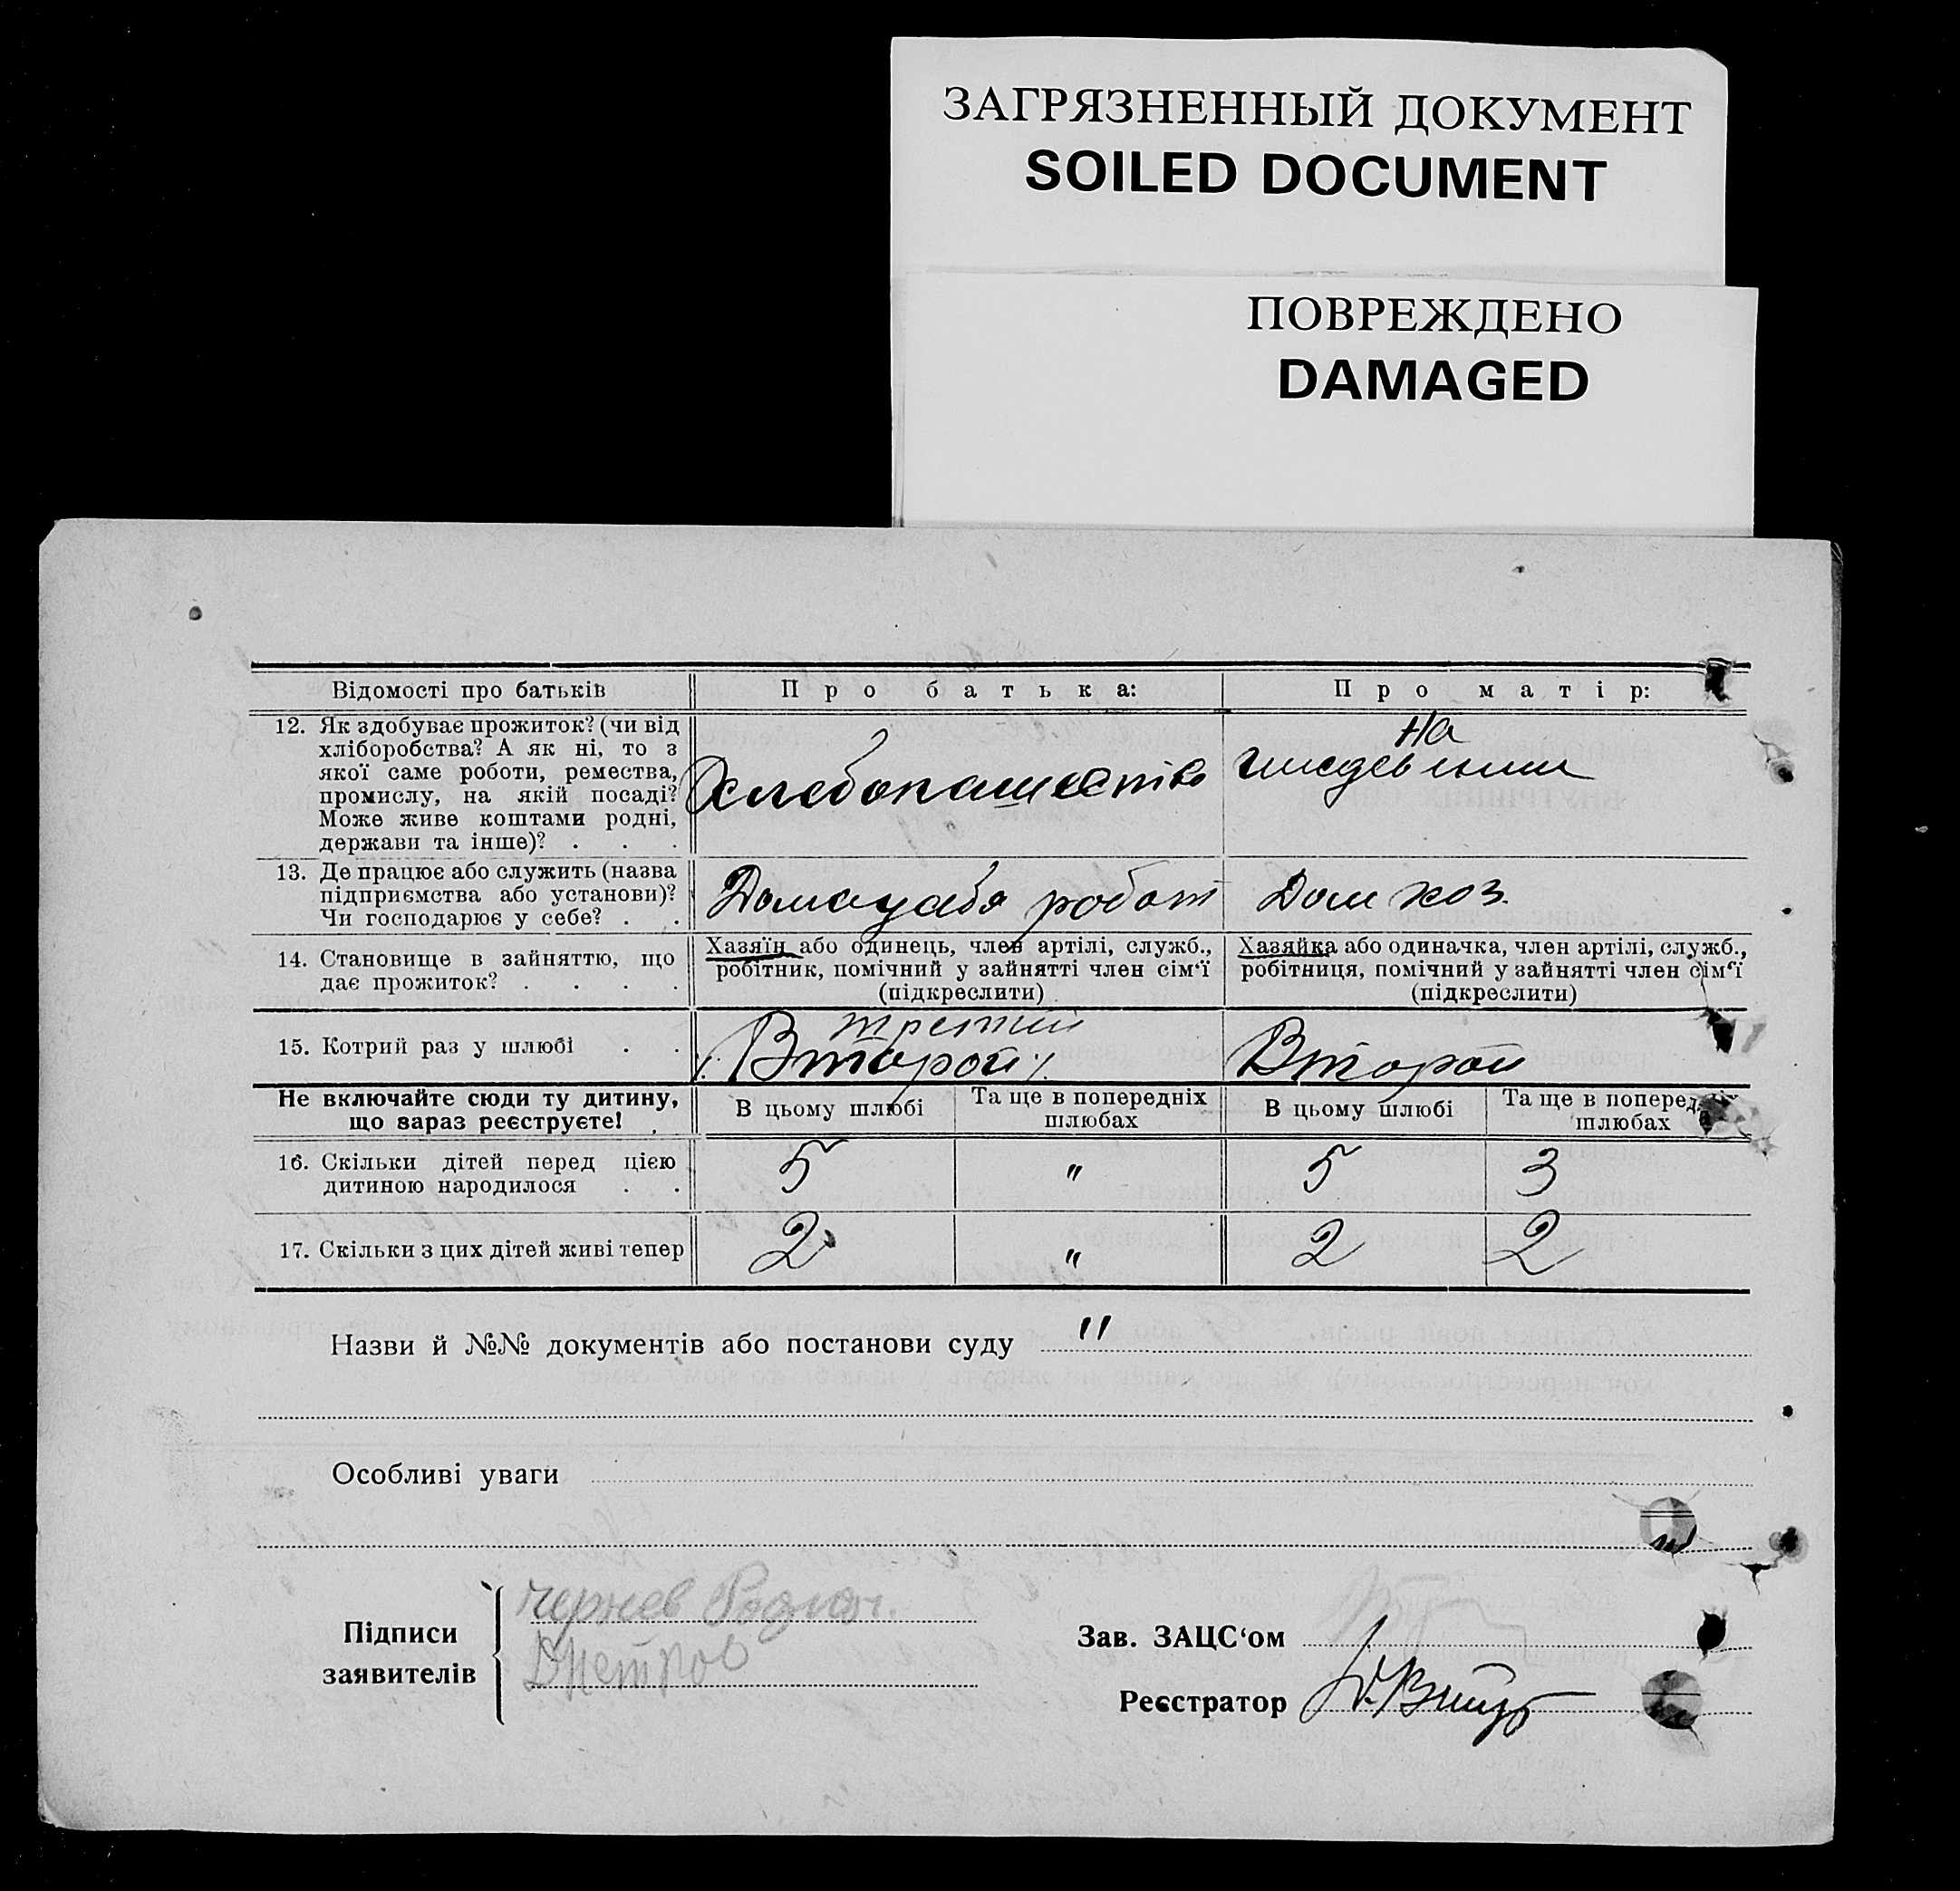 ЗАГРЯЗНЕННЫЙ ДОКУМЕНТ
SOILED DOCUMENT
ПОВРЕЖДЕНО
DAMAGED
Відомості про батьків
Про батька:
Про матір:
12. Як здобуває прожиток? (чи від
хліборобства? А як ні, то з
якої саме роботи, ремества,
промислу, на якій посаді?
Може живе коштами родні,
держави та інше)? . . .
Хлебопашество
На
иждевении
13. Де працює або служить (назва
підприємства або установи)?
Чи господарює у себе? . .
робот
Дом хоз.
14. Становище в зайняттю, що
дає прожиток? . . . .
Хазяїн або одинець, член артілі, служб.,
робітник, помічний у зайнятті член сім‘ї
(підкреслити)
Хазяйка або одиначка, член артілі, служб.,
робітниця, помічний у зайнятті член сім‘ї
(підкреслити)
15. Котрий раз у шлюбі . .
третий
Второй
Второй
Не включайте сюди ту дитину,
що зараз реєструєте!
В цьому шлюбі
Та ще в попередніх
шлюбах
В цьому шлюбі
Та ще в поперед
шлюбах
16. Скільки дітей перед цією
дитиною народилося . .
5
"
5
3
17. Скільки з цих дітей живі тепер
2
"
2
2
Назви й №№ документів або постанови суду "
Особливі уваги
Підписи
заявителів
Чернев Родион.
Дметров
Зав. ЗАЦС‘ом
Реєстратор